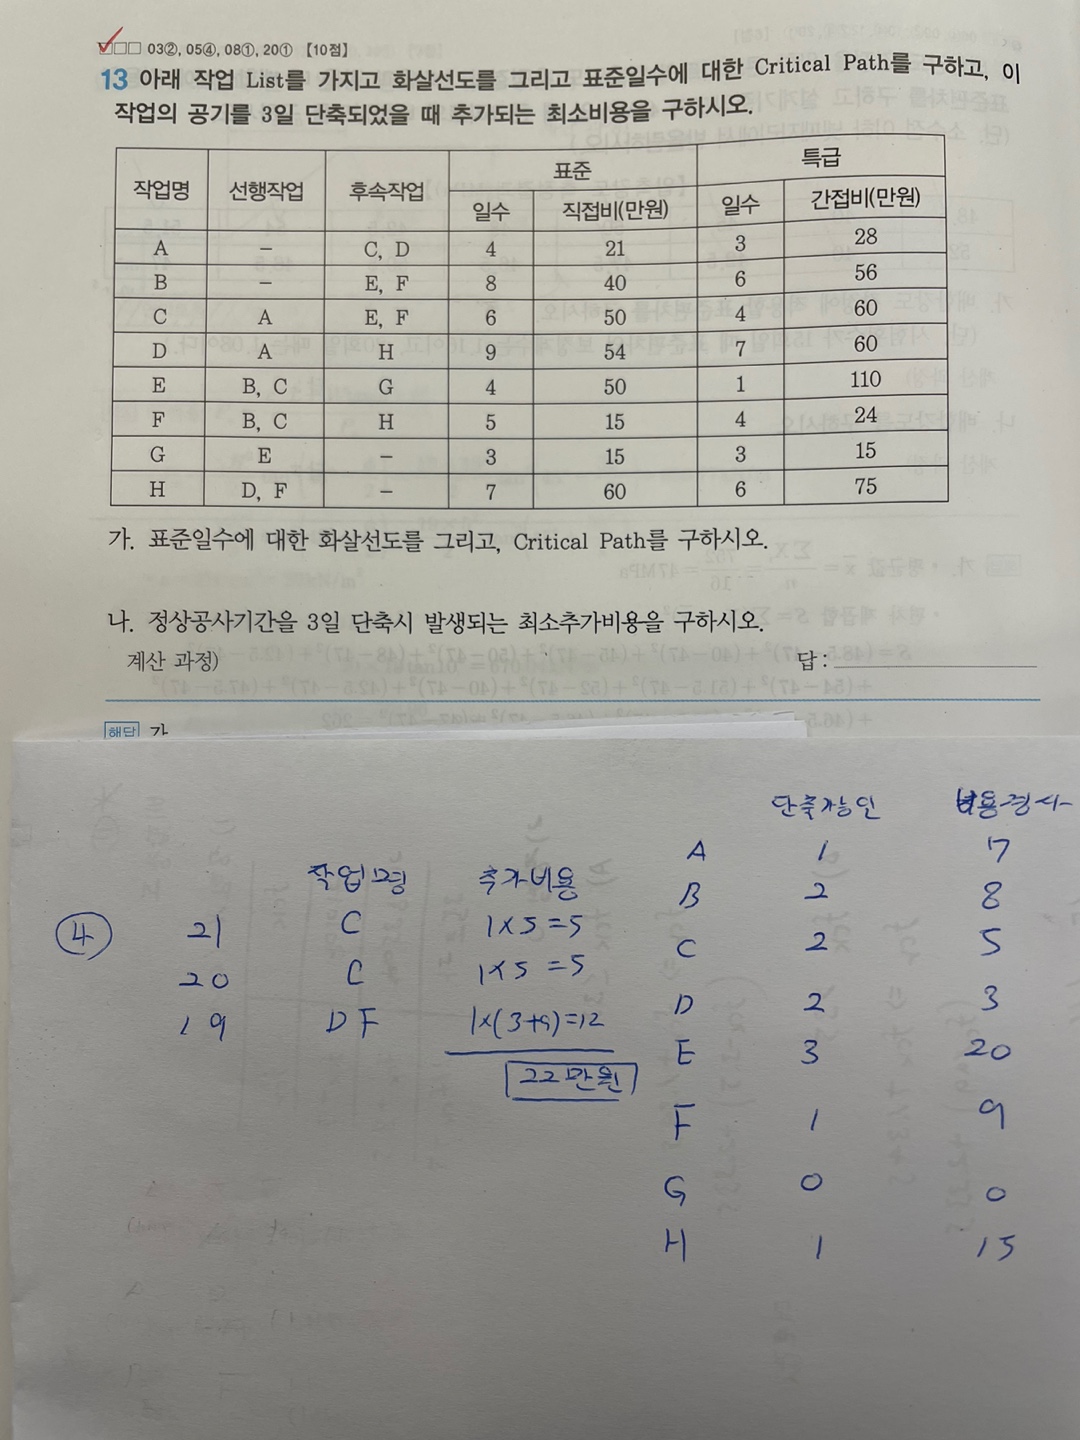 03②, 05④, 08①, 20① 【10점】
13 아래 작업 List를 가지고 화살선도를 그리고 표준일수에 대한 Critical Path를 구하고, 이
작업의 공기를 3일 단축되었을 때 추가되는 최소비용을 구하시오.
작업명 선행작업 후속작업 표준 특급
일수 직접비(만원) 일수 간접비(만원)
A - C, D 4 21 3 28
B - E, F 8 40 6 56
C A E, F 6 50 4 60
D A H 9 54 7 60
E B, C G 4 50 1 110
F B, C H 5 15 4 24
G E - 3 15 3 15
H D, F - 7 60 6 75
가. 표준일수에 대한 화살선도를 그리고, Critical Path를 구하시오.
나. 정상공사기간을 3일 단축시 발생되는 최소추가비용을 구하시오.
계산 과정) 답 :
해답 가
단축가능일 비용경사
작업명 추가비용
④ 21 C 1×5=5
20 C 1×5=5
19 D F 1×(3+9)=12
22만원
A 1 7
B 2 8
C 2 5
D 2 3
E 3 20
F 1 9
G 0 0
H 1 15